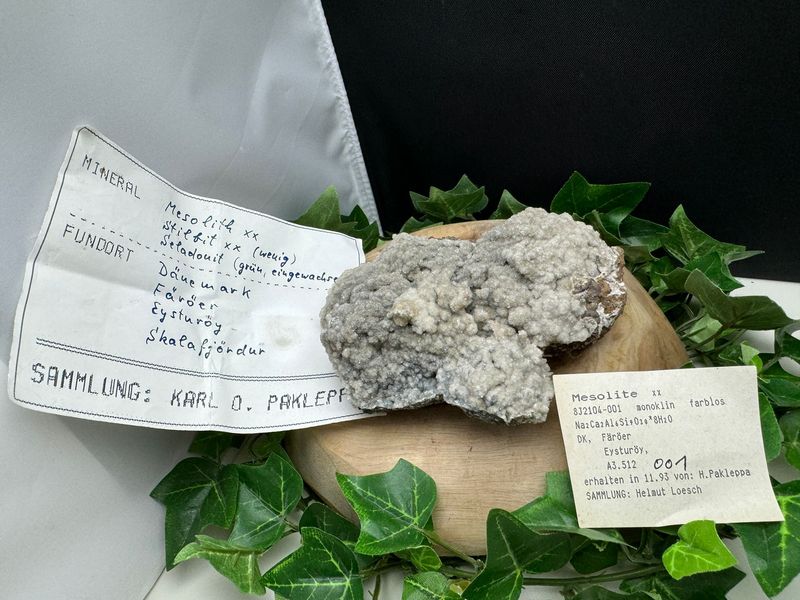 MINERAL
Mesolith xx
Stilbit xx (wenig)
Seladonit (grün, eingewachsen
FUNDORT
Dänemark
Färöer
Eysturöy
Skalafjördur
SAMMLUNG: KARL O. PAKLEPP
Mesolite xx
8J2104-001 monoklin farblos
Na₂Ca₂Al₆Si₉O₃₀*8H₂O
DK, Färöer
Eysturöy,
A3.512 001
erhalten in 11.93 von: H.Pakleppa
SAMMLUNG: Helmut Loesch